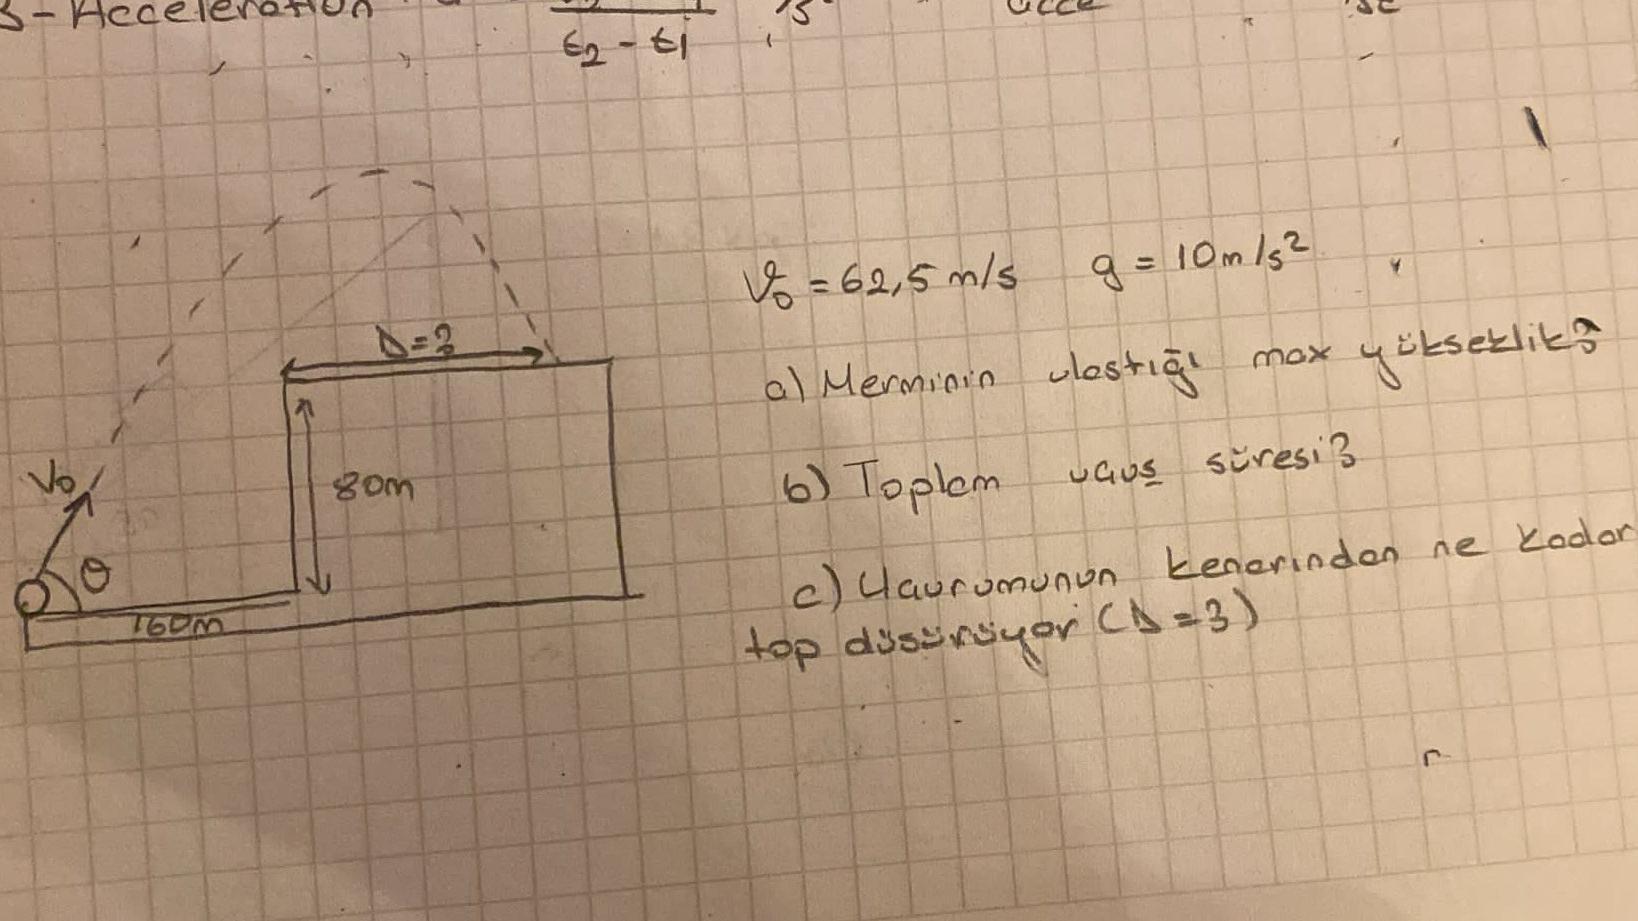 3-Acceleration
t2 - t1
V0 = 62,5 m/s g = 10m/s²
a) Merminin ulastığı max yükseklik?
Δ=?
b) Toplam uçuş süresi?
V0
80m
θ
c) Uçurumunun kenarından ne kadar
top düşürüyor (Δ=?)
160m